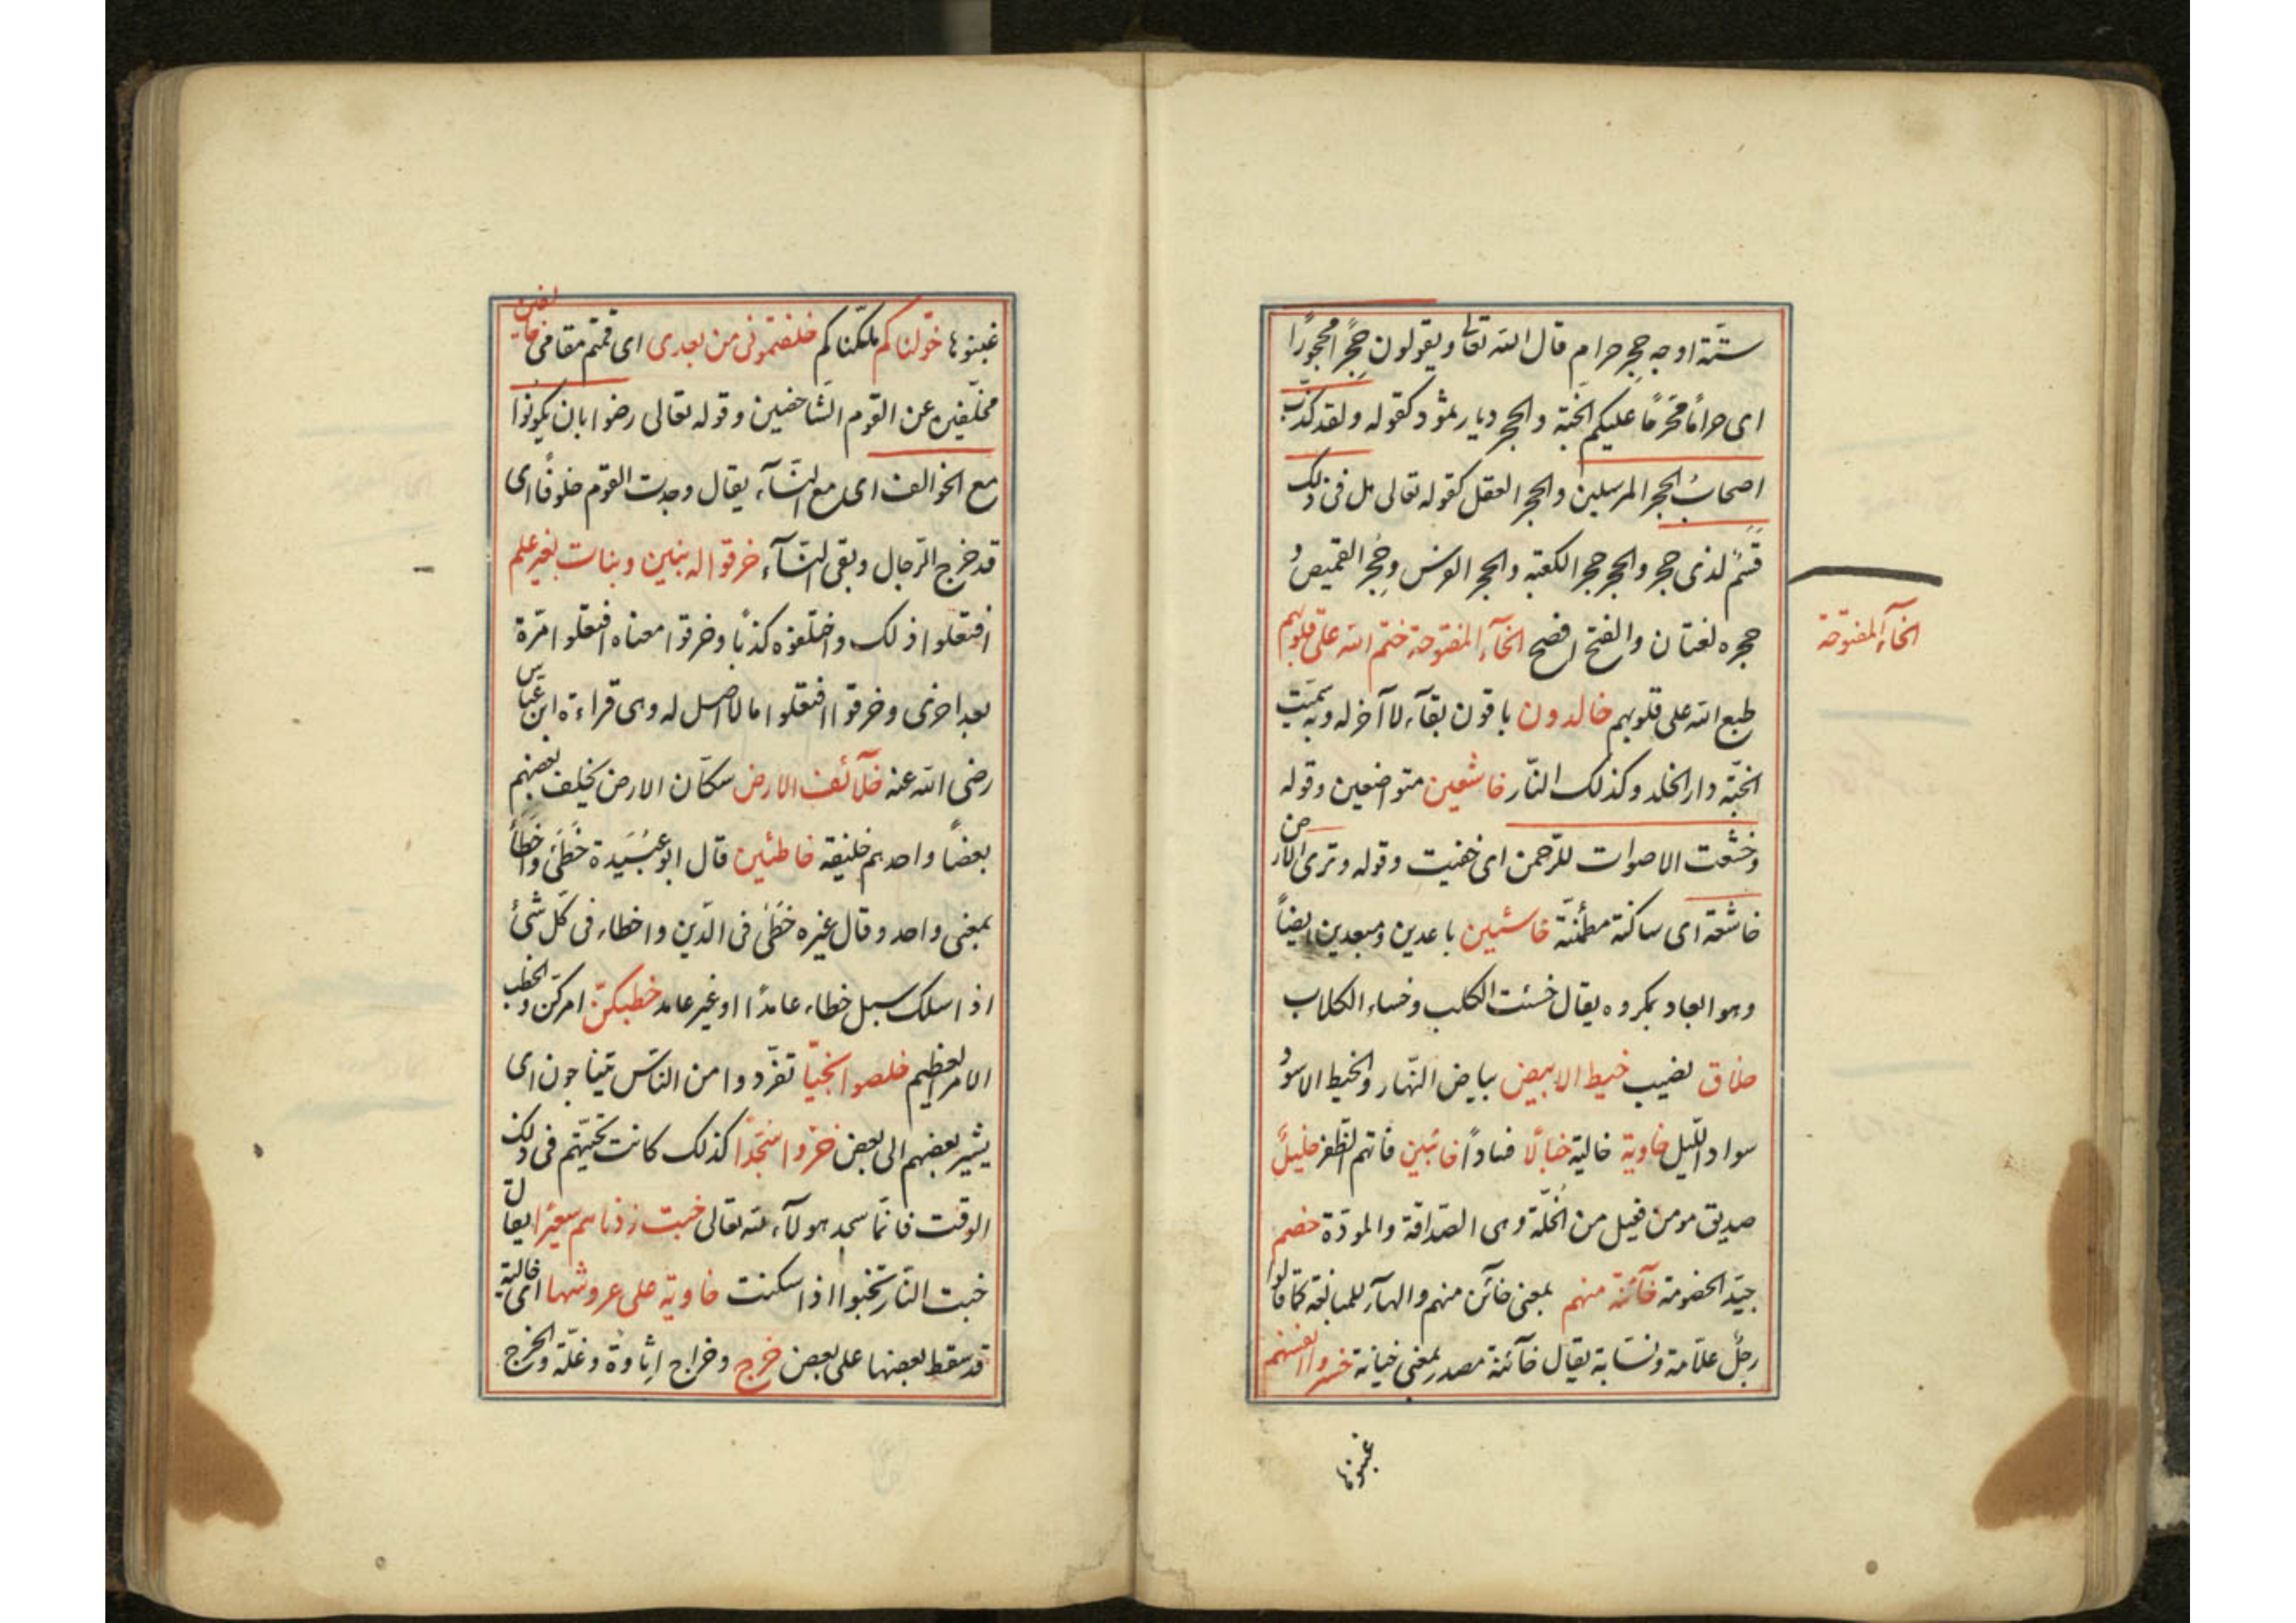 ستّة اوجه حِجر حرام قال الله تعالى ويقولون حِجرًا محجورًا
اى حرامًا محرّمًا عليكم الجنّة والحجر ديار ثمود كقوله ولقد كذّب
اصحابُ الحِجر المرسلين والحجر العقل كقوله تعالى هل فى ذلك
قَسَمٌ لذى حجر والحجر حجر الكعبة والحجر الفرس وحِجر القميص و
حجره لغتان والفتح افصح الخآء المفتوحة ختم الله على قلوبهم
الخآء المفتوحة
طبع الله على قلوبهم خالدون باقون بقآء لا آخر له وبه سمّيت
الجنّة دار الخلد وكذلك النّار خاشعين متواضعين وقوله
وخشعت الاصوات للرّحمن اى خفيت وقوله وترى الارض
خاشعة اى ساكنة مطمئنّة خاسئين باعدين ومبعدين ايضاً
وهو ابعاد بمكروه يقال خسئت الكلب وخساء الكلاب
خلاق نصيب خيط الابيض بياض النّهار والخيط الاسود
سواد اللّيل خاوية خالية خبالًا فسادًا خائبين فاتهم الظّفر خليلًا
صديق مومن فعيل من الخُلّة وهى الصّداقة والمودّة خصم
جيّد الخصومة خآئنة منهم بمعنى خآئن منهم والهآء للمبالغة كما قالوا
رجلٌ علّامة ونسّابة يقال خآئنة مصدر بمعنى خيانة خسروا انفسهم
غبنوها
غبنوها خوّلناكم ملّكناكم خلفتمونى من بعدى اى قمتم مقامى خالفين
مخلّفين عن القوم الشّاخصين وقوله تعالى رضوا بان يكونوا
مع الخوالف اى مع النّسآء يقال وجدت القوم خلوفًا اى
قد خرج الرّجال وبقى النّسآء خرقوا له بنين وبنات بغير علم
افتعلوا ذلك واختلقوه كذبًا وخرقوا معناه افتعلوا مرّة
بعد اخرى وخرقوا افتعلوا ما لا اصل له وهى قراءة ابن عبّاس
رضى الله عنه خلآئف الارض سكّان الارض يخلف بعضهم
بعضًا واحدهم خليفة خاطئين قال ابو عبيدة خَطَئَ واَخطأَ
بمعنى واحد وقال غيره خَطَئَ فى الدّين واخطاء فى كلّ شئ
اذا سلك سبيل خطاء عامدًا او غير عامد خطبكنّ امركنّ والخطب
الامر العظيم خلصوا نجيّا تفرّدوا من النّاس يتناجون اى
يشير بعضهم الى بعض خرّوا سُجّدًا كذلك كانت تحيّتهم فى ذلك
الوقت فانّما سجد هولآء لله تعالى خبت زدناهم سعيرًا يقال
خبت النّار تخبوا اذا سكنت خاوية على عروشها اى خالية
قد سقط بعضها على بعض خرج وخراج اِتاوة وغلّة والخرج